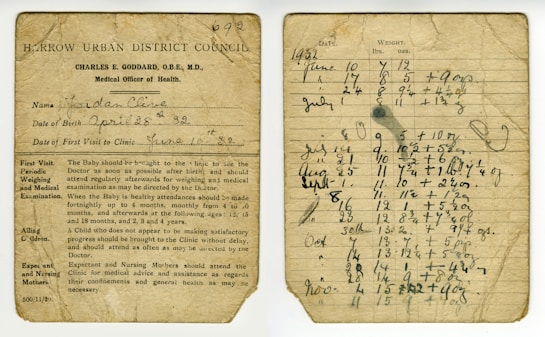 692
HARROW URBAN DISTRICT COUNCIL
CHARLES E. GODDARD, O.B.E., M.D.,
Medical Officer of Health.
Name Jordan Clive
Date of Birth April 28th 32
Date of First Visit to Clinic June 10th 32
First Visit The Baby should be brought to the Clinic to see the
Periodic Doctor as soon as possible after birth, and should
Weighing attend regularly afterwards for weighing and medical
and Medical examination as may be directed by the Doctor.
Examination. When the Baby is healthy attendances should be made
fortnightly up to 6 months, monthly from 4 to 10
months, and afterwards at the following ages: 13, 15
and 18 months, and 2, 3 and 4 years.
Ailing A Child who does not appear to be making satisfactory
Children. progress should be brought to the Clinic without delay,
and should attend as often as may be directed by the
Doctor.
Expectant Expectant and Nursing Mothers should attend the
and Nursing Clinic for medical advice and assistance as regards
Mothers. their confinements and general health as may be
necessary.
DATE. WEIGHT.
lbs. ozs.
1932
June 10 7 12
" 17 8 5 + 9 ozs.
" 24 8 9½ + 4½ oz
July 1 8 11
" 8 9 5 + 10 oz
July 14 9 10½ + 5½ oz
" 21 10
Aug 25 11 7¼
Sept 1. 11 10 + 2¾ oz.
" 8 11 11½ + 1½ oz
" 16 12 1 + 5½ oz
" 23 12 8¾ + 7¾ oz
30th 13 2
Oct 7 13 7
" 14 13 12½ + 5
14 1
" 28 14 9 + 8 oz
Nov. 4 15